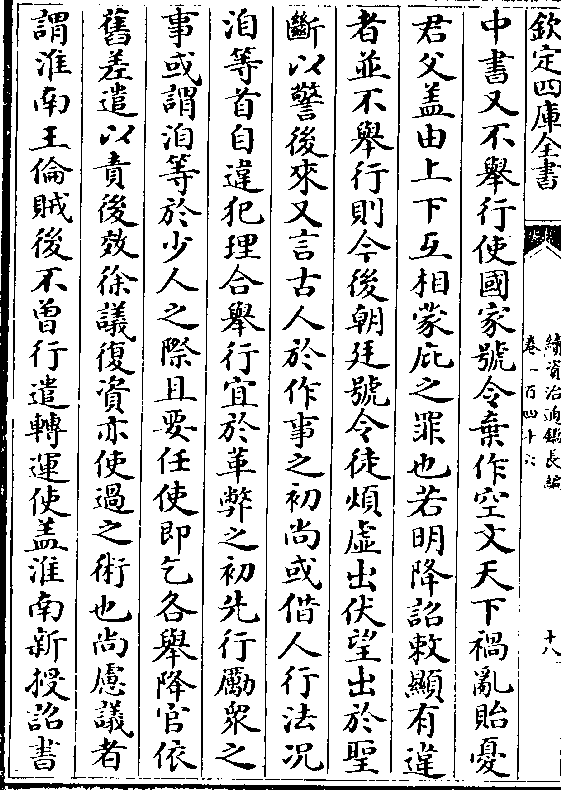 欽定四庫全書
續資治通鑑長編
卷一百四十六
十八
中書又不舉行使國家號令棄作空文天下禍亂貽憂
君父盖由上下互相蒙庇之罪也若明降詔敕顯有違
者並不舉行則今後朝廷號令徒煩虛出伏望出於聖
斷以警後來又言古人於作事之初尚或借人行法况
洎等首自違犯理合舉行宜於革弊之初先行勵衆之
事或謂洎等於少人之際且要任使即乞各舉降官依
舊差遣以責後效徐議復資亦使過之術也尚慮議者
謂淮南王倫賊後不曾行遣轉運使盖淮南新授詔書